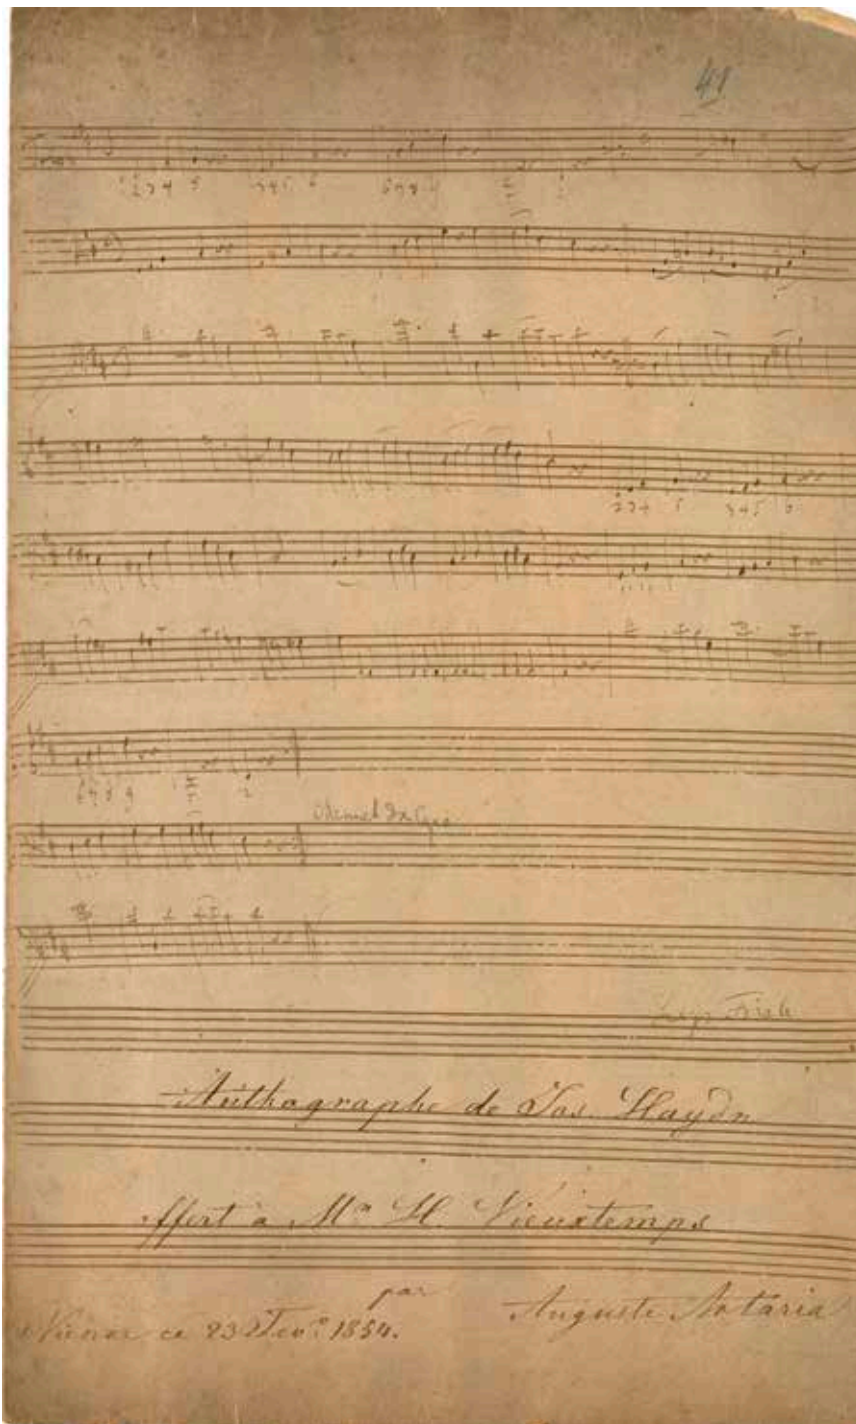 41
2 3 4 5 3 4 5 6 6 7 8 9
2 3 4 5 3 4 5 6
6 7 8 9 2
Menuet Da Capo
Authographe de Jos. Haydn
offert à Mr. H. Vieuxtemps
par
Auguste Artaria
Vienne ce 23 1854.